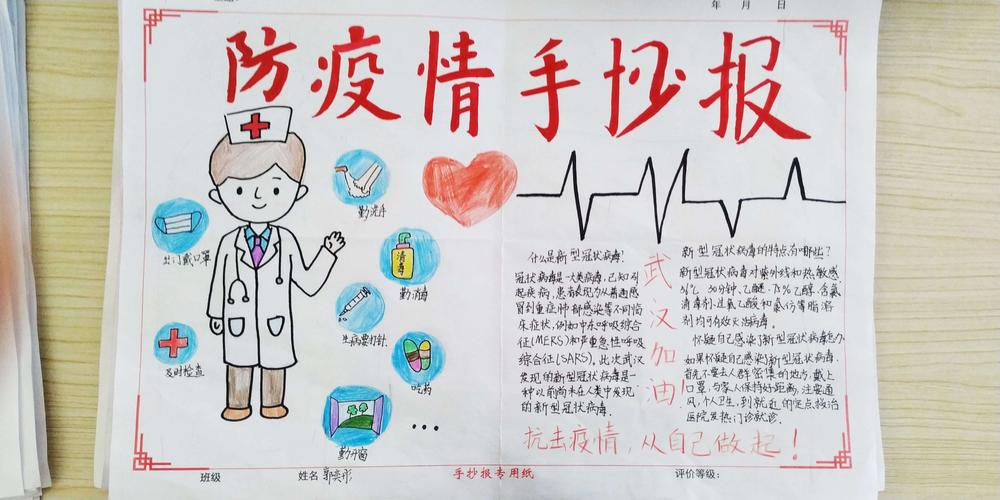 年 月 日
防疫情手抄报
勤洗手
出门戴口罩
消毒
勤消毒
生病要打针
及时检查
吃药
勤开窗
...
什么是新型冠状病毒?
冠状病毒是一大类病毒,已知引
起疾病,患者表现为从普通感
冒到重症肺部感染等不同临
床症状,例如中东呼吸综合
征(MERS)和严重急性呼吸
综合征(SARS)。此次武汉
发现的新型冠状病毒是一
种以前尚未在人类中发现
的新型冠状病毒。
武汉加油!
新型冠状病毒的特点有哪些?
新型冠状病毒对紫外线和热敏感,
56℃ 30分钟、乙醚、75%乙醇、含氯
消毒剂、过氧乙酸和氯仿等脂溶
剂均可有效灭活病毒。
怀疑自己感染了新型冠状病毒怎么办
如果怀疑自己感染了新型冠状病毒,
首先不要去人群密集的地方,戴上
口罩,与家人保持好距离,注意通
风,个人卫生,到就近的定点救治
医院发热门诊就诊。
抗击疫情,从自己做起!
班级 姓名 郭奕彤 手抄报专用纸 评价等级: